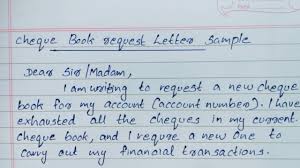 Cheque Book request Letter Sample
Dear Sir/Madam,
I am writing to request a new cheque
book for my account (account number). I have
exhausted all the cheques in my current
cheque book, and I require a new one to
carry out my financial transactions.